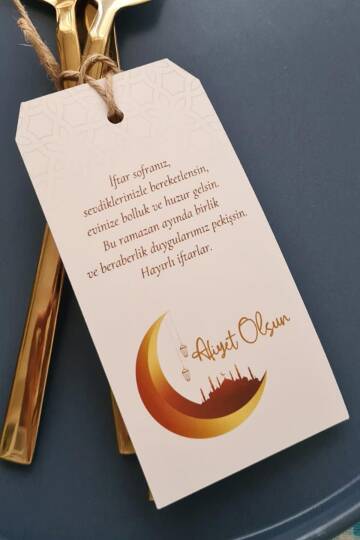 İftar sofranız,
sevdiklerinizle bereketlensin,
evinize bolluk ve huzur gelsin.
Bu ramazan ayında birlik
ve beraberlik duygularımız pekişsin.
Hayırlı iftarlar.
Afiyet Olsun